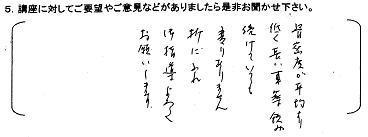 5. 講座に対してご要望やご意見などがありましたら是非お聞かせ下さい。
骨密度が平均より
低く長い事薬飲み
続けていても
変りありません
折にふれ
御指導よろしく
お願いします